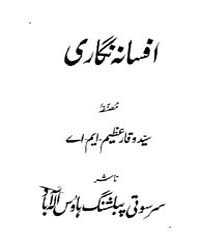 افسانہ نگاری
مصنفہ
سید وقار عظیم۔ ایم۔ اے
ناشر
سرسوتی پبلشنگ ہاؤس الہ آباد